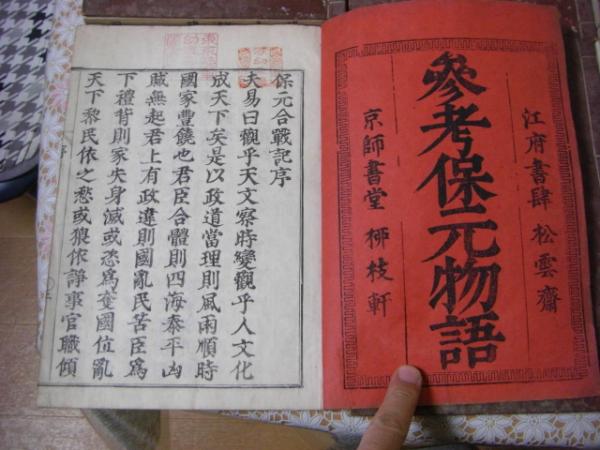 江府書肆 松雲齋
參考保元物語
京師書堂 柳枝軒
保元合戰記序
夫易曰觀乎天文察時變觀乎人文化
成天下矣是以政道當理則風雨順時
國家豐饒也君臣合體則四海泰平凶
賊無起君上有政違則國亂民苦臣爲
下禮背則家失身滅或恣爲奪國位亂
天下黎民依之愁或猥依諍事官職傾
序